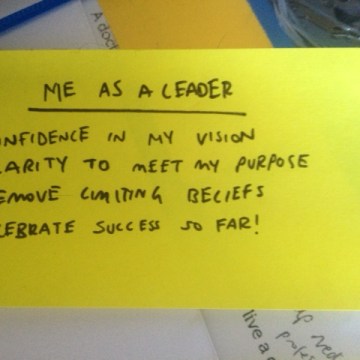 A doct
ME AS A LEADER
ONFIDENCE IN MY VISION
LARITY TO MEET MY PURPOSE
EMOVE LIMITING BELIEFS
LEBRATE SUCCESS SO FAR!
need
live a